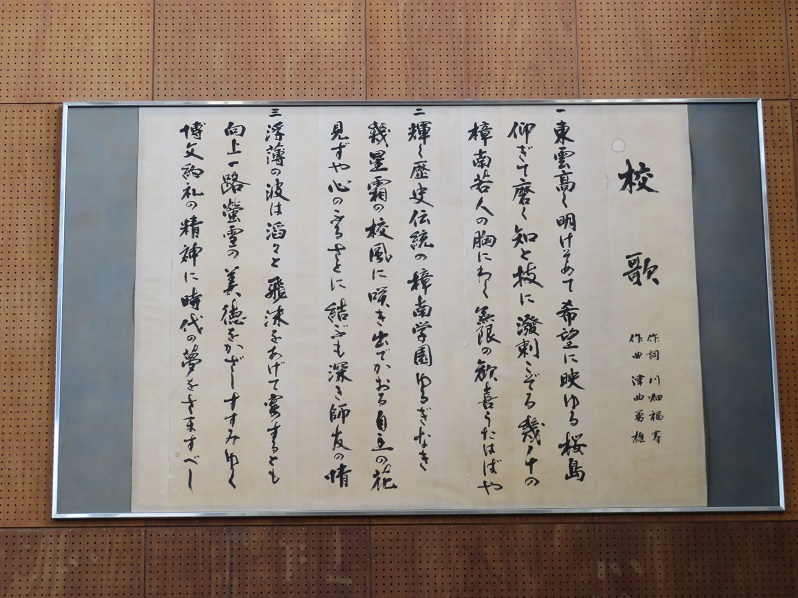 校歌
作詞 川畑福寿
作曲 津曲勇雄
一 東雲高く明けそめて 希望に映ゆる桜島
仰ぎて磨く知と技に 潑刺こぞる幾千の
樟南若人の胸にわく 無限の歓喜うたはばや
二 輝く歴史伝統の 樟南学園ゆるぎなき
幾星霜の校風に 咲き出でかおる自主の花
見ずや心のふるさとに 結ぶも深き師友の情
三 浮薄の波は滔々と 飛沫をあげて雲するとも
向上一路螢雪の 美徳をかざしすすみゆく
博文約礼の精神に 時代の夢を